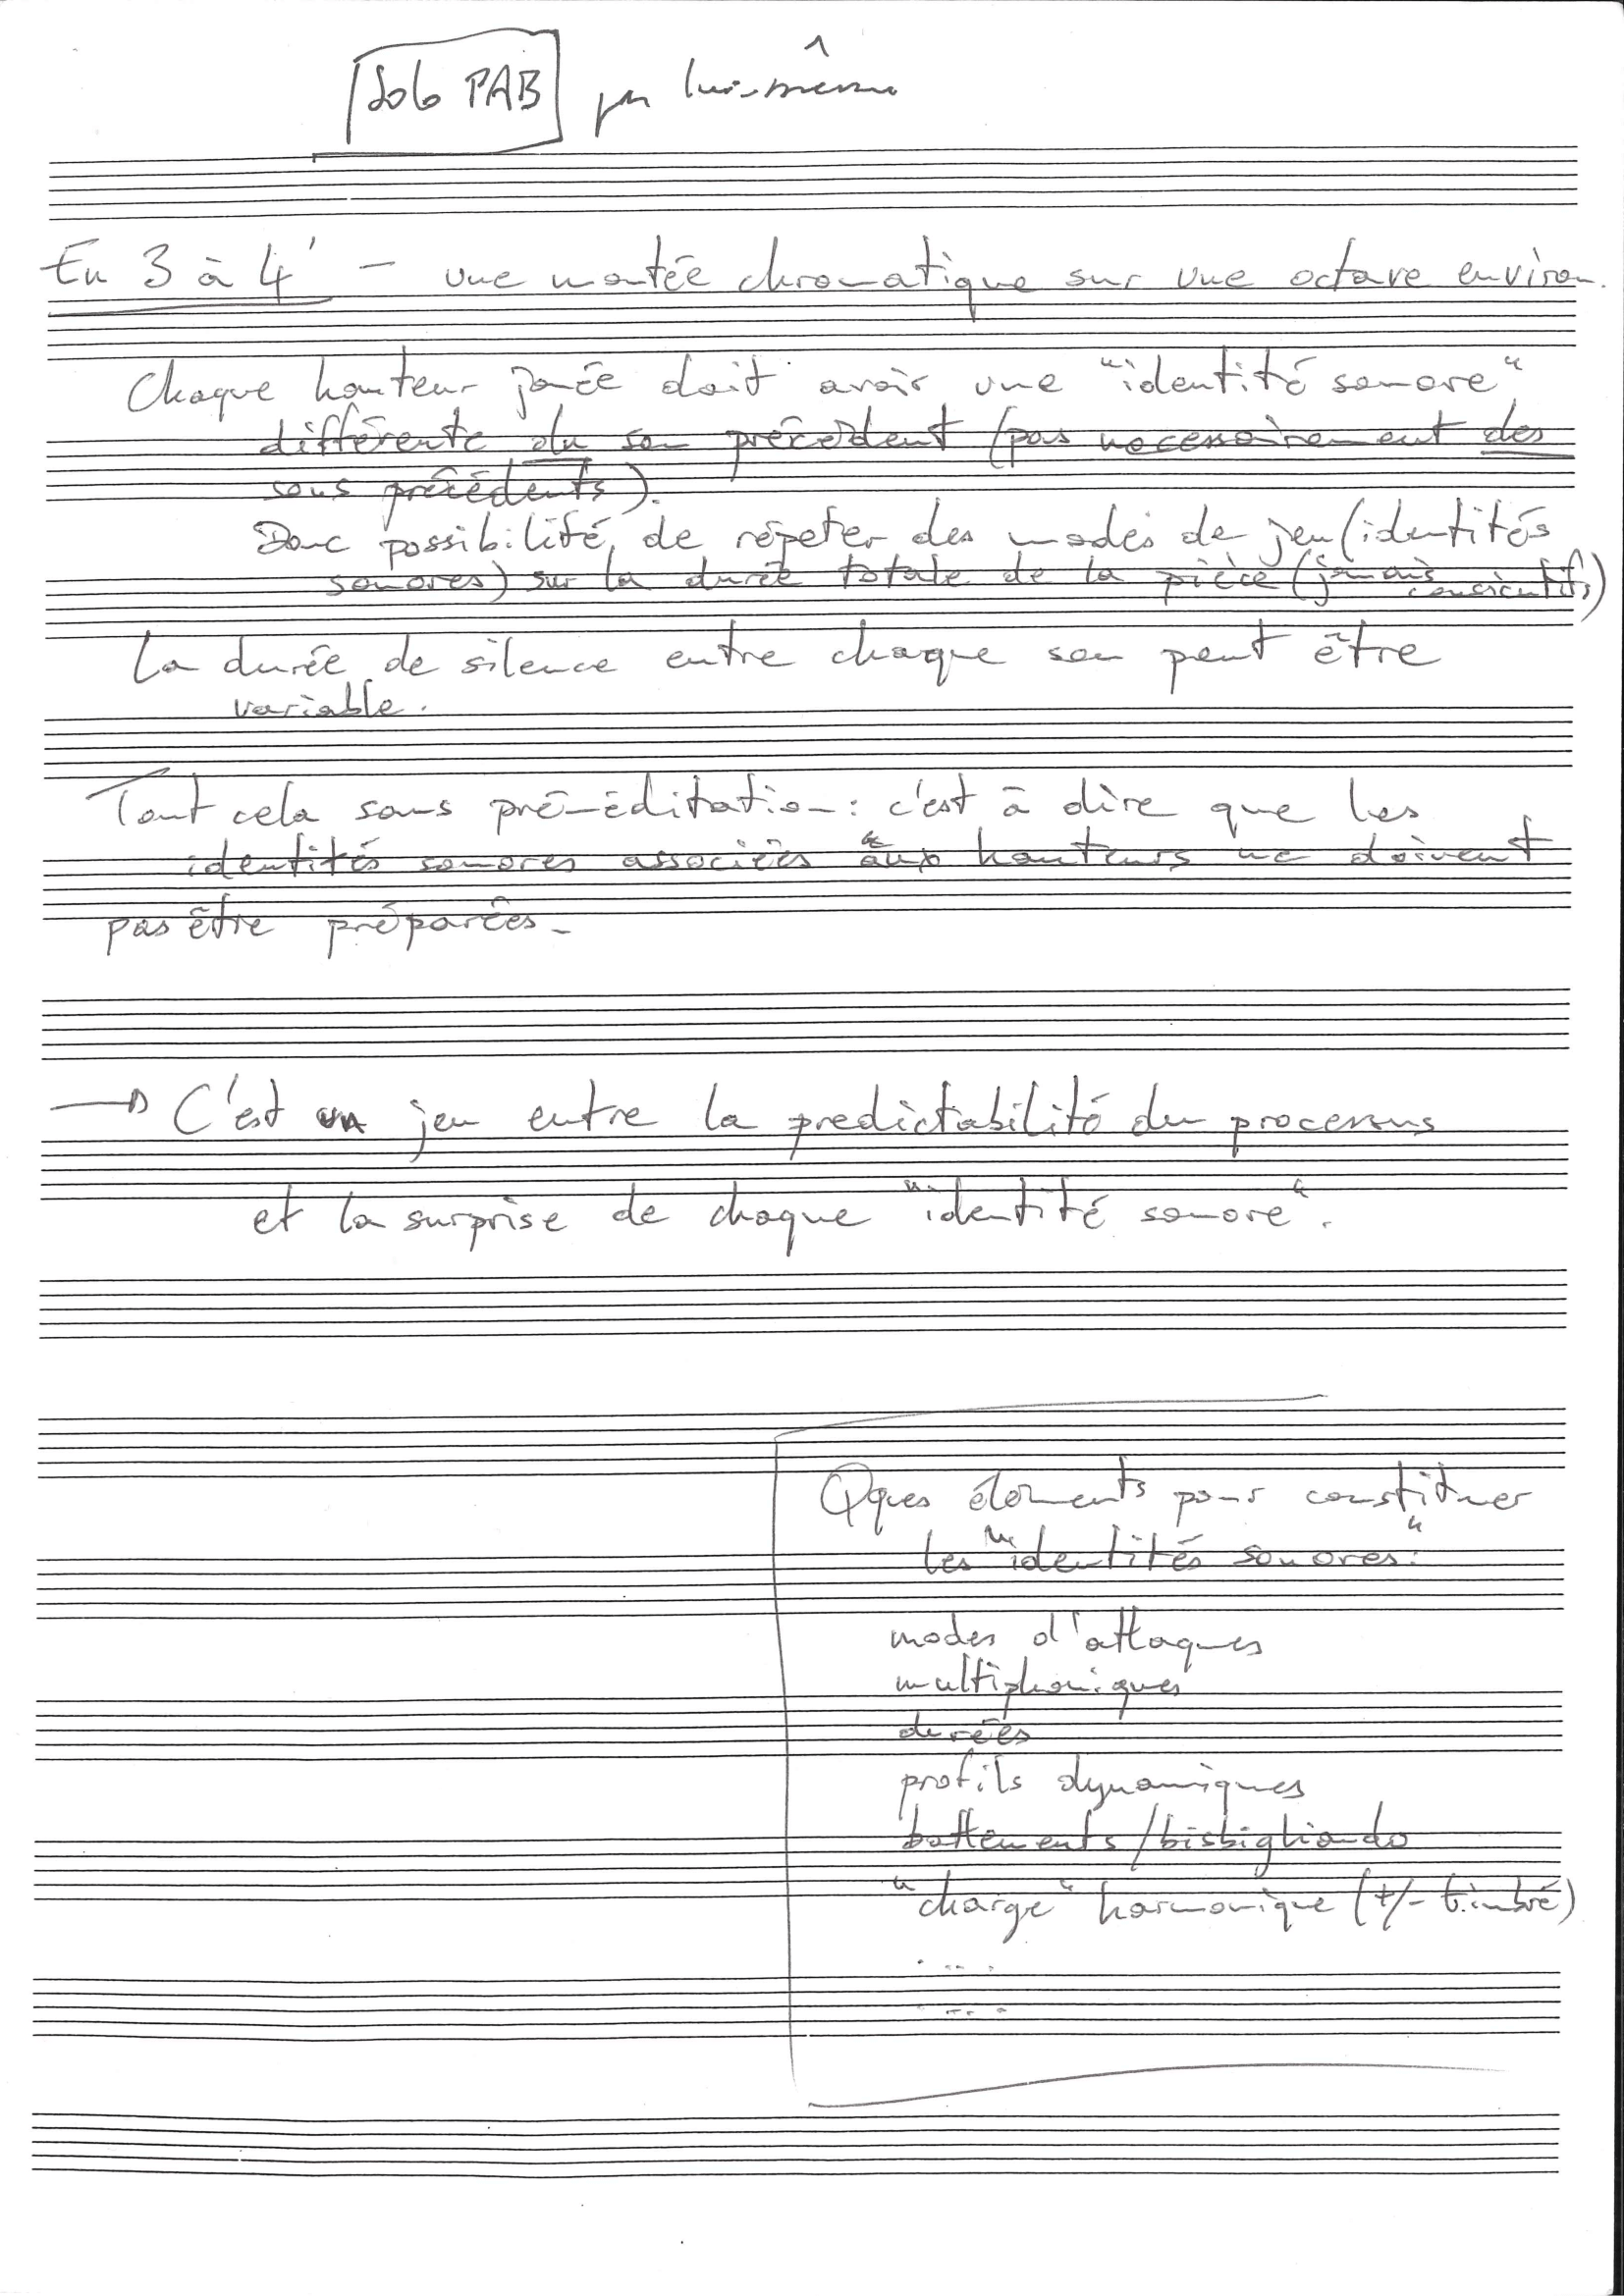 Solo PAB par lui-même
En 3 à 4' - une montée chromatique sur une octave environ.
Chaque hauteur jouée doit avoir une "identité sonore"
différente du son précédent (pas necessairement des
sons précédents).
Donc possibilité de répeter des modes de jeu (identités
sonores) sur la durée totale de la pièce (jamais
consécutifs)
La durée de silence entre chaque son peut être
variable.
Tout cela sans préméditation : c'est à dire que les
identités sonores associées aux hauteurs ne doivent
pas être préparées.
→ C'est un jeu entre la predictabilité du processus
et la surprise de chaque "identité sonore".
Qques éléments pour constituer
les "identités sonores" :
modes d'attaques
multiphoniques
durées
profils dynamiques
battements/bisbigliando
"charge" harmonique (+/- timbré)
....
....